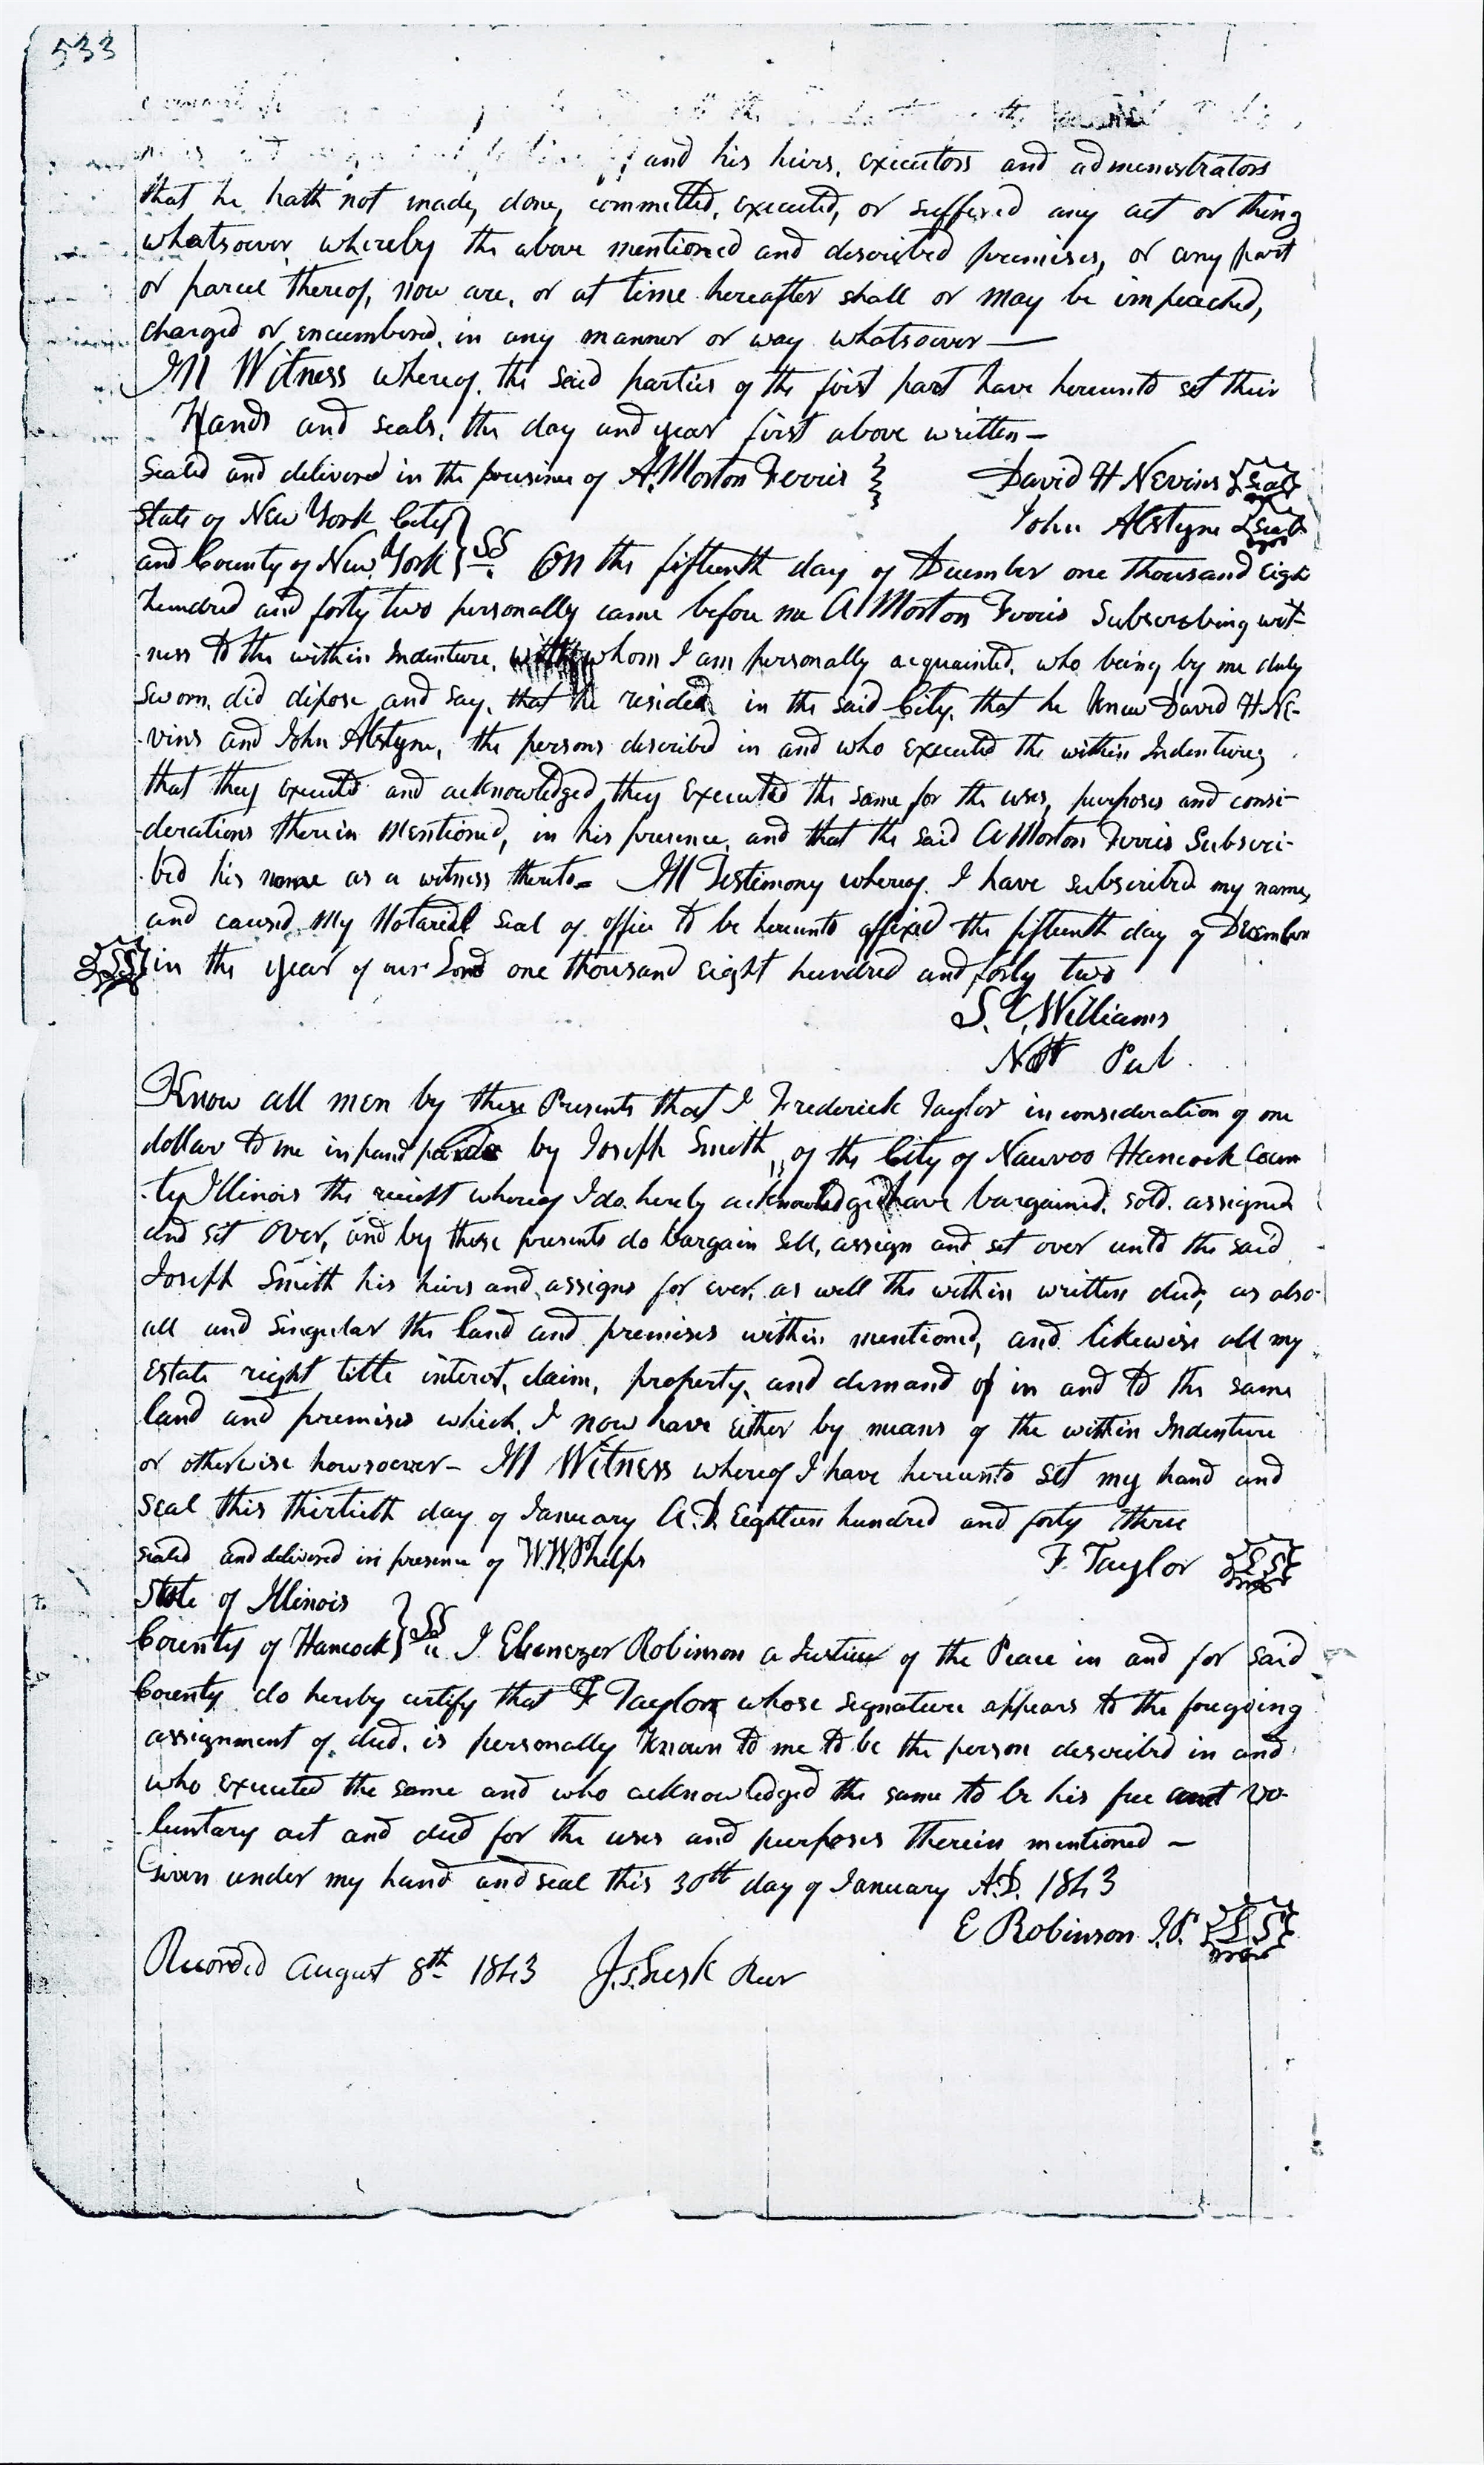 533
and his heirs, executors and administrators
that he hath not made, done, committed, executed, or suffered any act or thing
whatsoever, whereby the above mentioned and described premises, or any part
or parcel thereof, now are, or at time hereafter shall or may be impeached,
charged or encumbered, in any manner or way whatsoever—
In Witness whereof, the said parties of the first part have hereunto set their
Hands and seals, the day and year first above written—
Sealed and delivered in the presence of A. Morton Ferris David H Nevins Seal
State of New York City John Alstyne Seal
and County of New York } SS. On the fifteenth day of December one thousand Eigh
hundred and forty two personally came before me A Morton Ferris Subscribing wit-
-ness to the within Indenture, with whom I am personally acquainted, who being by me duly
sworn, did dipose and say, that he resided in the said City, that he knew David H Ne-
-vins and John Alstyne, the persons described in and who executed the within Indenture,
that they executed and acknowledged they executed the same for the uses, purposes and consi-
-derations therein mentioned, in his presence, and that the said A Morton Ferris Subscri-
-bed his name as a witness thereto= In Testimony whereof I have subscribed my name,
and caused my Notarial seal of office to be hereunto affixed the fifteenth day of December
LS in the year of our Lord one thousand Eight hundred and forty two
S. C. Williams
Nott Pub.
Know all men by these Presents that I Frederick Taylor in consideration of one
dollar to me in hand paid by Joseph Smith, of the City of Nauvoo Hancock Coun
-ty Illinois the receipt whereof I do hereby acknowledge have bargained, sold, assigned
and set over, and by these presents do bargain sell, assign and set over unto the said
Joseph Smith his heirs and assigns for ever, as well the within written deed, as also
all and singular the land and premises within mentioned, and likewise all my
Estate right title interest, claim, property, and demand of in and to the same
land and premises which I now have either by means of the within Indenture
or otherwise howsoever— In Witness whereof I have hereunto set my hand and
seal this thirtieth day of January A.D. Eighteen hundred and forty three
sealed and delivered in presence of W. W. Phelps F. Taylor LS
State of Illinois
County of Hancock } SS I Ebenezer Robinson a Justice of the Peace in and for said
County do hereby certify that F Taylor whose signature appears to the foregoing
assignment of deed, is personally known to me to be the person described in and
who executed the same and who acknowledged the same to be his free and vo-
-luntary act and deed for the uses and purposes therein mentioned—
Given under my hand and seal this 30th day of January A.D. 1843
E Robinson J.P. LS
Recorded August 8th 1843 J. S. Lusk Recr